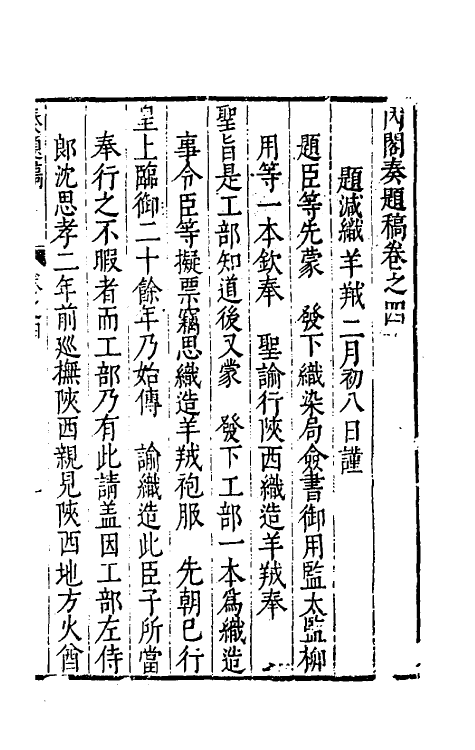 內閣奏題稿卷之四
題減織羊羢二月初八日謹
題臣等先蒙　發下織染局僉書御用監太監柳
用等一本欽奉　聖諭行陝西織造羊羢奉
聖旨是工部知道後又蒙　發下工部一本爲織造
事令臣等擬票竊思織造羊羢袍服　先朝已行
皇上臨御二十餘年乃始傳　諭織造此臣子所當
奉行之不暇者而工部乃有此請盖因工部左侍
郎沈思孝二年前巡撫陝西親見陝西地方火酋
奏題稿